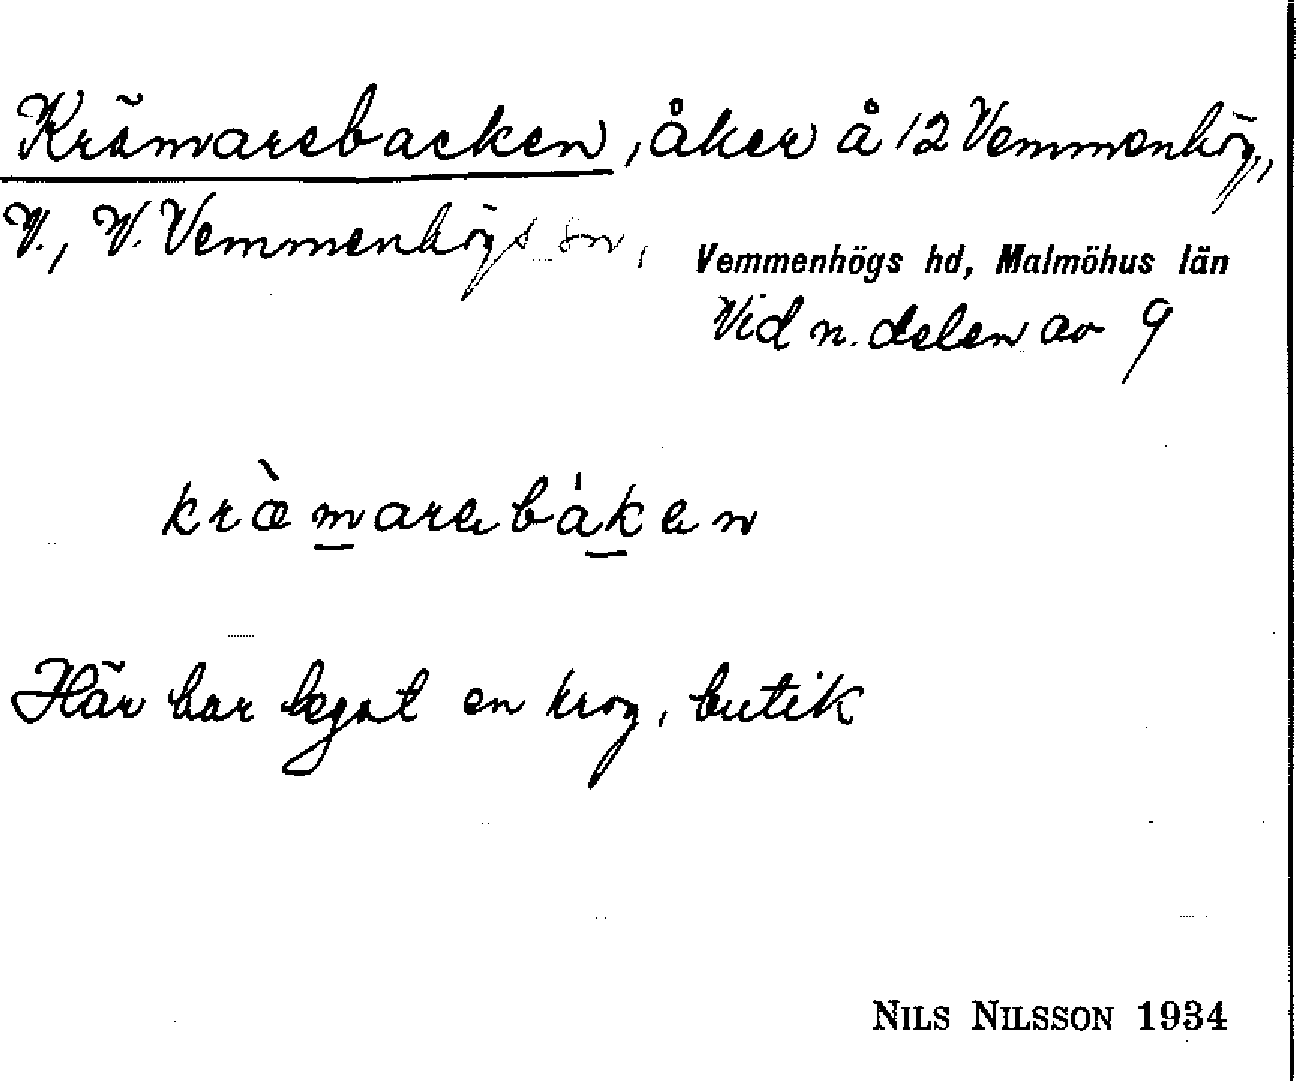 Krämarebacken, åker å 12 Vemmenhög,
V., V. Vemmenhögs sn,
Vemmenhögs hd, Malmöhus län
Vid n. delen av 9
kræ̀marebáken
Här har legat en krog, butik
NILS NILSSON 1934